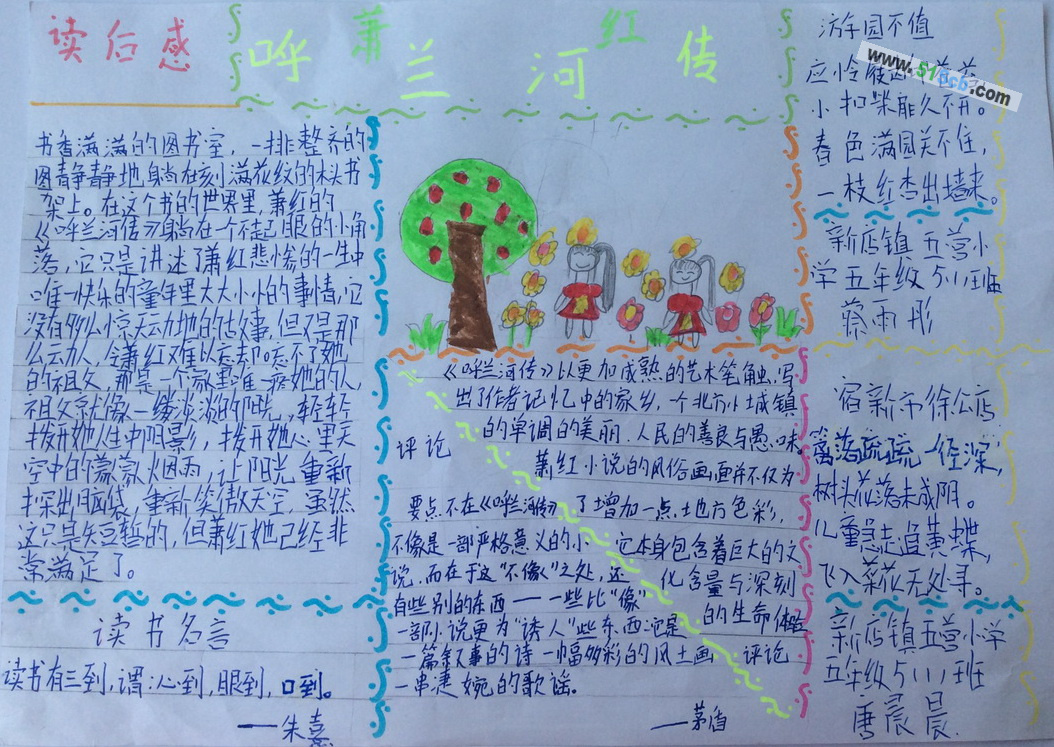 读后感
呼兰河传
萧红
书香满满的图书室，一排整齐的
图静静地躺在刻满花纹的木头书
架上。在这个书的世界里，萧红的
《呼兰河传》躺在一个不起眼的小角
落，它只是讲述了萧红悲惨的一生中
唯一快乐的童年里大大小小的事情，它
没有多么惊天动地的故事，但又是那
么动人，令萧红难以忘却，忘不了她
的祖父，那是一个家里唯一疼她的人
祖父就像一缕淡淡的阳光，轻轻
拨开她人生中阴影，拨开她心里天
空中的蒙蒙烟雨，让阳光重新
探出脑袋，重新笑傲天空，虽然
这只是短暂的，但萧红她已经非
常满足了。
读书名言
读书有三到，谓：心到，眼到，口到。
——朱熹
《呼兰河传》以更加成熟的艺术笔触，写
出了作者记忆中的家乡，一个北方小城镇
的单调的美丽、人民的善良与愚昧
萧红小说的风俗画面并不仅为
了增加一点地方色彩，
它本身包含着巨大的文
化含量与深刻
的生命体验
评论
评论
要点不在《呼兰河传》
不像是一部严格意义的小
说，而在于这“不像”之处，还
有些别的东西——一些比“像”
一部小说更为“诱人”些东西：它是
一篇叙事的诗 一幅多彩的风土画
一串凄婉的歌谣。
——茅盾
游园不值
应怜屐齿
小扣柴扉久不开。
春色满园关不住，
一枝红杏出墙来。
新店镇五营小
学五年级511班
蔡雨彤
宿新市徐公店
篱落疏疏一径深，
树头花落未成阴。
儿童急走追黄蝶，
飞入菜花无处寻。
新店镇五营小学
五年级511班
唐晨晨
www.51bcb.com